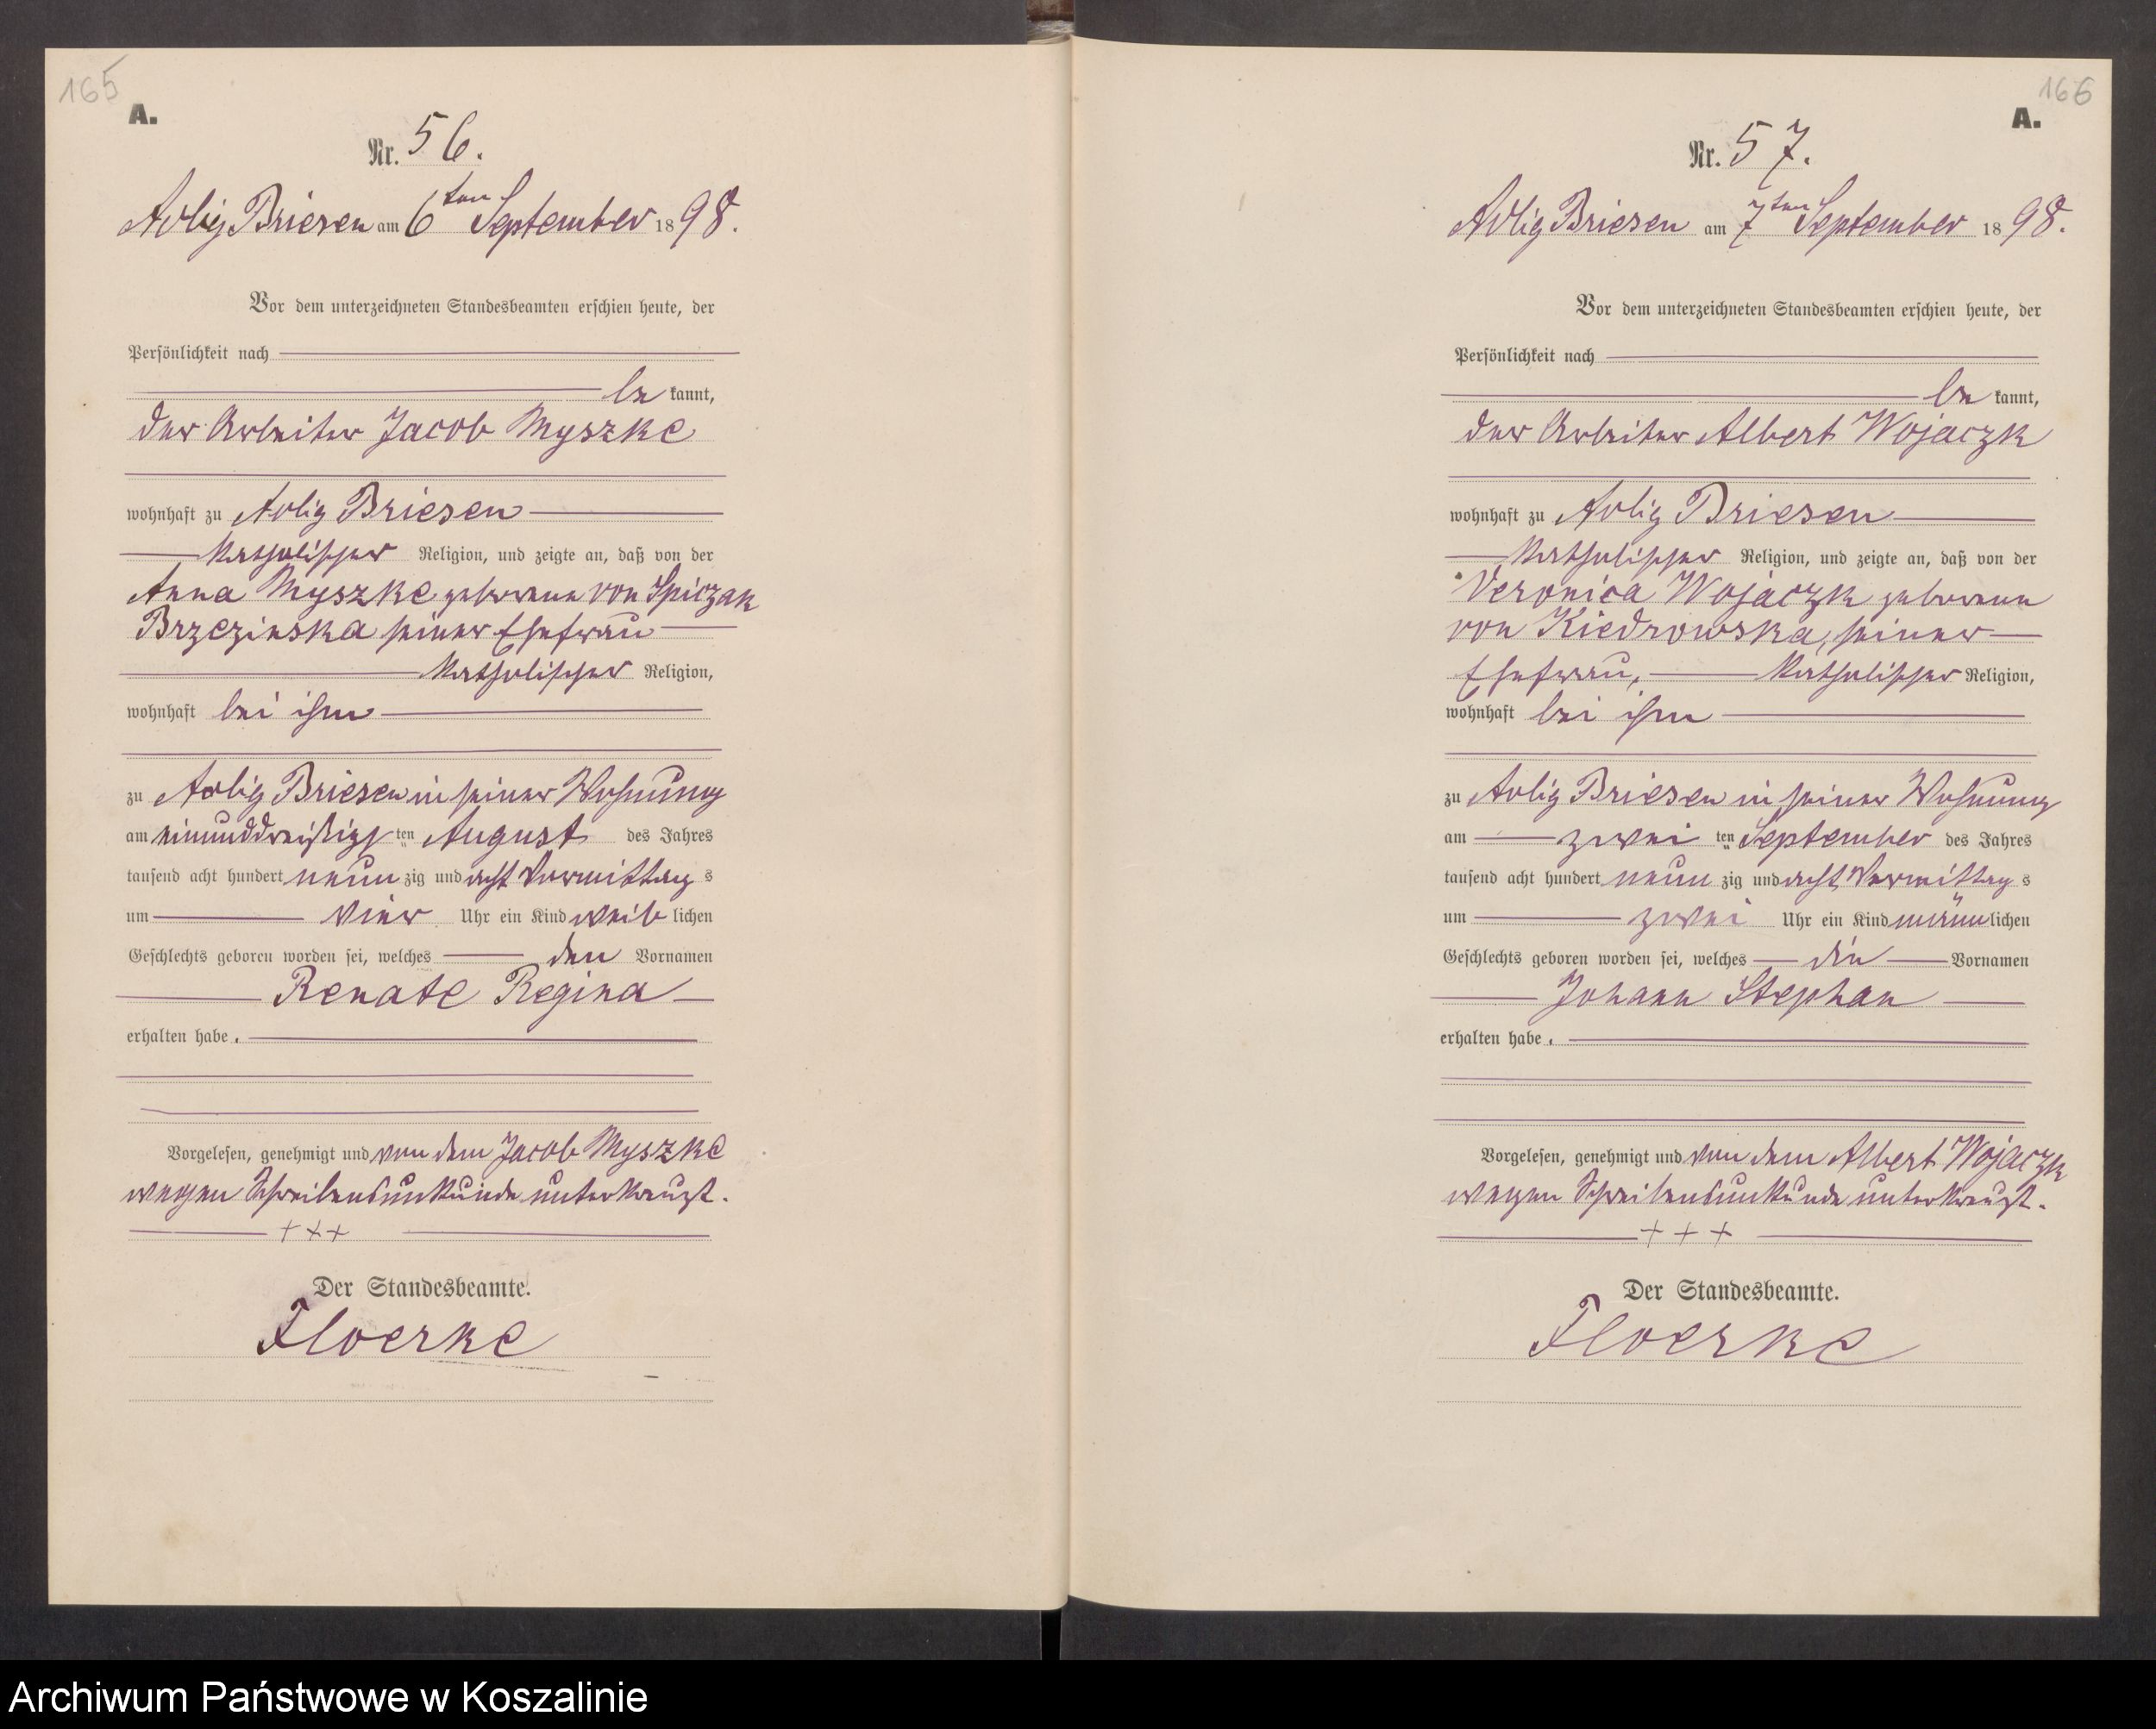 165
A.
Nr. 56.
Adlig Briesen am 6ten September 1898.
Vor dem unterzeichneten Standesbeamten erschien heute, der
Persönlichkeit nach
be kannt,
der Arbeiter Jacob Myszke
wohnhaft zu Adlig Briesen
katholischer Religion, und zeigte an, daß von der
Anna Myszke geborene von Spiczak
Brzezinska seiner Ehefrau
katholischer Religion,
wohnhaft bei ihm
zu Adlig Briesen in seiner Wohnung
am einunddreißigsten August des Jahres
tausend acht hundert neunzig und acht Vormittags
um vier Uhr ein Kind weiblichen
Geschlechts geboren worden sei, welches den Vornamen
Renate Regina
erhalten habe.
Vorgelesen, genehmigt und von dem Jacob Myszke
wegen Schreibensunkunde unterkreuzt.
+++
Der Standesbeamte.
Floerke
166
A.
Nr. 57.
Adlig Briesen am 7ten September 1898.
Vor dem unterzeichneten Standesbeamten erschien heute, der
Persönlichkeit nach
be kannt,
der Arbeiter Albert Wojaczk
wohnhaft zu Adlig Briesen
katholischer Religion, und zeigte an, daß von der
Veronica Wojaczk geborene
von Kiedrowska, seiner
Ehefrau, katholischer Religion,
wohnhaft bei ihm
zu Adlig Briesen in seiner Wohnung
am zweiten September des Jahres
tausend acht hundert neunzig und acht, Vormittags
um zwei Uhr ein Kind männlichen
Geschlechts geboren worden sei, welches die Vornamen
Johann Stephan
erhalten habe.
Vorgelesen, genehmigt und von dem Albert Wojaczk
wegen Schreibensunkunde unterkreuzt.
+ + +
Der Standesbeamte.
Floerke
Archiwum Państwowe w Koszalinie